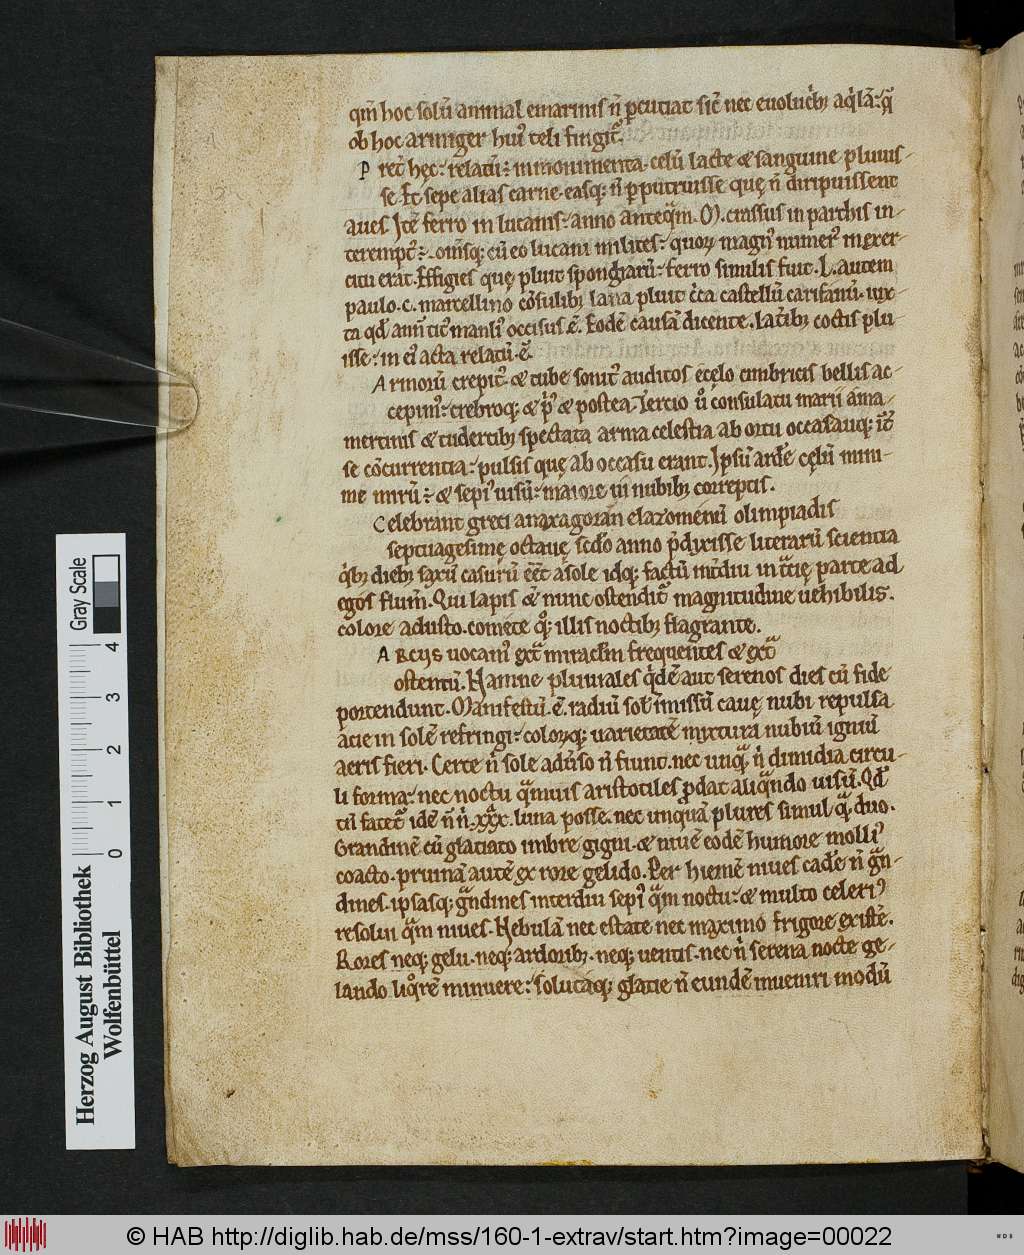 qm̄ hoc solū animal e marinis n̄ pcutiat sic̄ nec e uolucrib; aqͥlā. q̄
ob hoc armiger huiꝰ teli fingit᷑.
P ret̄ hęc. relatū: in monimenta. celū lacte & sanguine pluuis-
se. Et sepe alias carne. easq; n̄ pputruisse quę n̄ diripuissent
aues. Itē ferro in lucanis. anno anteqͣm. M. crassus in parthis in-
terempt᷑. omīsq; cū eo lucani milites. quoꝝ magnꝰ numerꝰ in exer-
citu erat. Effigies quę pluit spongiarū. ferro similis fuit. L. autem
paulo. c. marcellino cōsulib; lana pluit cͥca castellū carifanū. iux-
ta qd̄ anñ titꝰ manliꝰ occisus ē. Eodē causā dicente. latib; coctis plu-
isse. in eiꝰ acta relatū. ē.
Armorū crepitꝰ & tube sonitꝰ auditos e cęlo cimbricis bellis ac-
cepimꝰ. crebroq; & pͥꝰ & postea. Tercio uͦ consulatu marii ama-
merinis & tudertib; spectata arma celestia ab ortu occasauq; int̄
se cōcurrentia. pulsis quę ab occasu erant. Ipsū ardē cęlū mini-
me mirū. & sepiꝰ uisū. maiore iḡi nubib; correptis.
Celebrant greci anaxagoran clazomeniū olimpiadis
septuagesimę octauę scd̄o anno p̄dyxisse literarū scientia
qͥb; dieb; saxū casurū eēt a sole idq; factū int̄diu in trͣcię parte ad
egos flum̄. Qui lapis & nunc ostendit᷑ magnitudine uehibilis.
colore adusto. comete qͦ; illis noctib; flagrante.
ARCUS uocamꝰ extͣ miraclm̄ frequentes & extͣ
ostentū. Nam ne pluuiales qͥdē aut serenos dies cū fide
portendunt. Manifestū. ē. radiū solͥ īmissū cauę nubi repulsa
acie in solē refringi. coloꝝq; uarietatē mixtura nubiū igniū
aeris fieri. Certe n̄ sole aduͥso n̄ fiunt. nec unqͣ; n̄ dimidia circu-
li forma. nec noctu qͣmuis aristotiles p̄dat aliqͣndo uisū. Qd̄
tū fatet᷑ idē n̄ n̄. xxx. luna posse. nec unquā plures simul qͣ; duo.
Grandinē cū glaciato imbre gigni. & niuē eodē humore molliꝰ
coacto. pruinā autē ex rore gelido. Per hiemē niues cadē n̄ grͣn-
dines. ipsasq; grͣndines interdiu sepiꝰ qͣm noctu. & multo celeriꝰ
resolui qͣm niues. Nebulā nec estate nec maximo frigore existē.
Rores neq; gelu. neq; ardorib;. neq; uentis. nec n̄ serena nocte ge-
lando liqͦrē minuere. solutaq; glacie n̄ eundē inueniri modū
Gray Scale
0 1 2 3 4
Herzog August Bibliothek
Wolfenbüttel
© HAB http://diglib.hab.de/mss/160-1-extrav/start.htm?image=00022